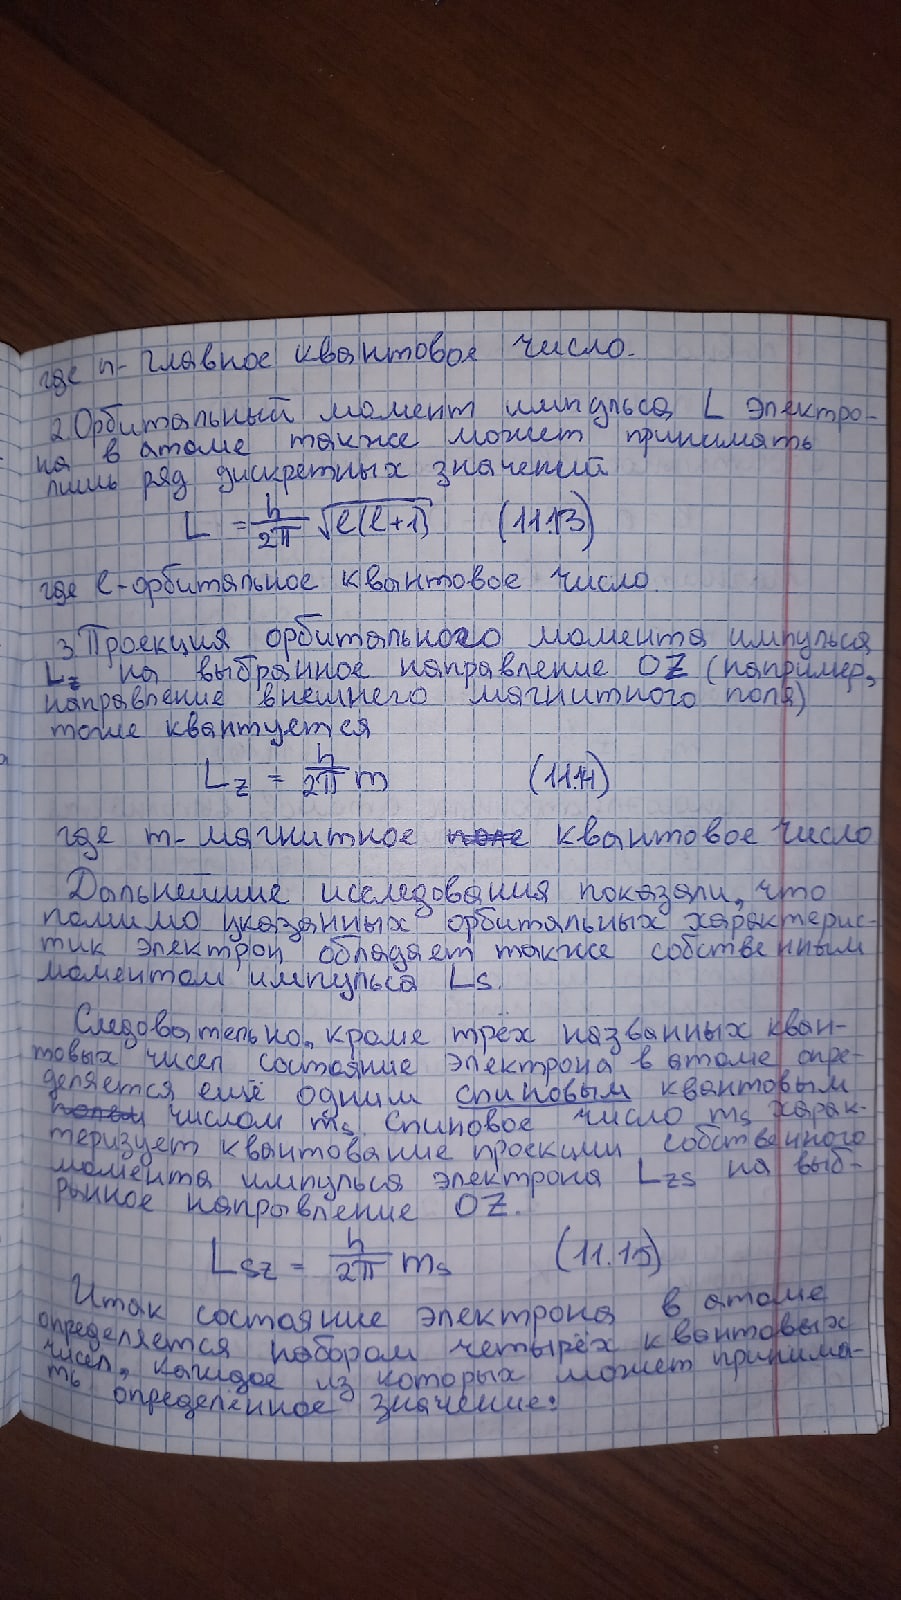 где n- главное квантовое число.
2. Орбитальный момент импульса L электро-
на в атоме также может принимать
лишь ряд дискретных значений
L = h/2π √l(l+1) (11.13)
где l-орбитальное квантовое число
3. Проекция орбитального момента импульса
Lz на выбранное направление OZ (например,
направление внешнего магнитного поля)
тоже квантуется
Lz = h/2π m (11.14)
где m- магнитное поле квантовое число
Дальнейшие исследования показали, что
помимо указанных орбитальных характерис-
тик электрон обладает также собственным
моментом импульса Ls.
Следовательно, кроме трёх названных кван-
товых чисел состояние электрона в атоме опре-
деляется ещё одним спиновым квантовым
числом ms. Спиновое число ms харак-
теризует квантование проекции собственного
момента импульса электрона Lzs на выб-
рынное напрывление OZ.
Lsz = h/2π ms (11.15)
Итак состояние электрона в атоме
определяется набором четырёх квантовых
чисел, каждое из которых может принима-
ть определённое значение: